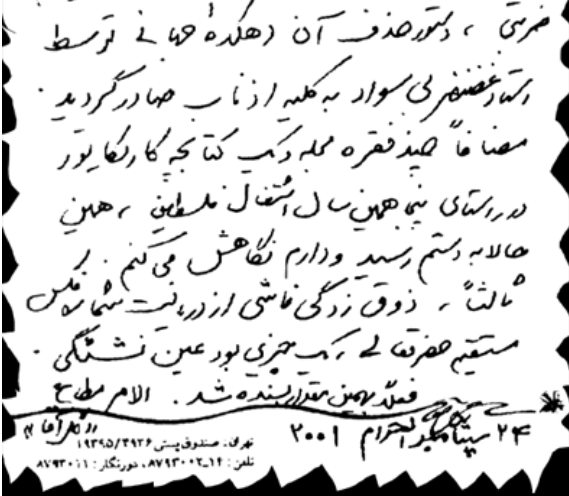 ضرتی ، دستور حذف آن دهکدهٔ جهانی توسط
استاد غضنفر بی سواد به کلیه اذناب صادر گردید .
مضافاً چند فقره مجله و یک کتابچه کاریکاتور
در راستای پنجاهمین سال اشغال فلسطین ، همین
حالا به دستم رسید و دارم نگاهش می کنم .
ثالثاً ، ذوق زدگی ناشی از دریافت شما فکس
مستقیم حضرتعالی ، یک چیزی بود عین نشئگی .
فعلاً بهمین مقدار بسنده شد . الامر مطاع
۲۴ سپتامبر الحرام ۲۰۰۱ «گل آقا»
تهران، صندوق پستی ۱۹۳۹۵/۴۹۳۶
تلفن: ۱۴ـ۸۷۹۳۰۰۲، دورنگار: ۸۷۹۳۰۱۱